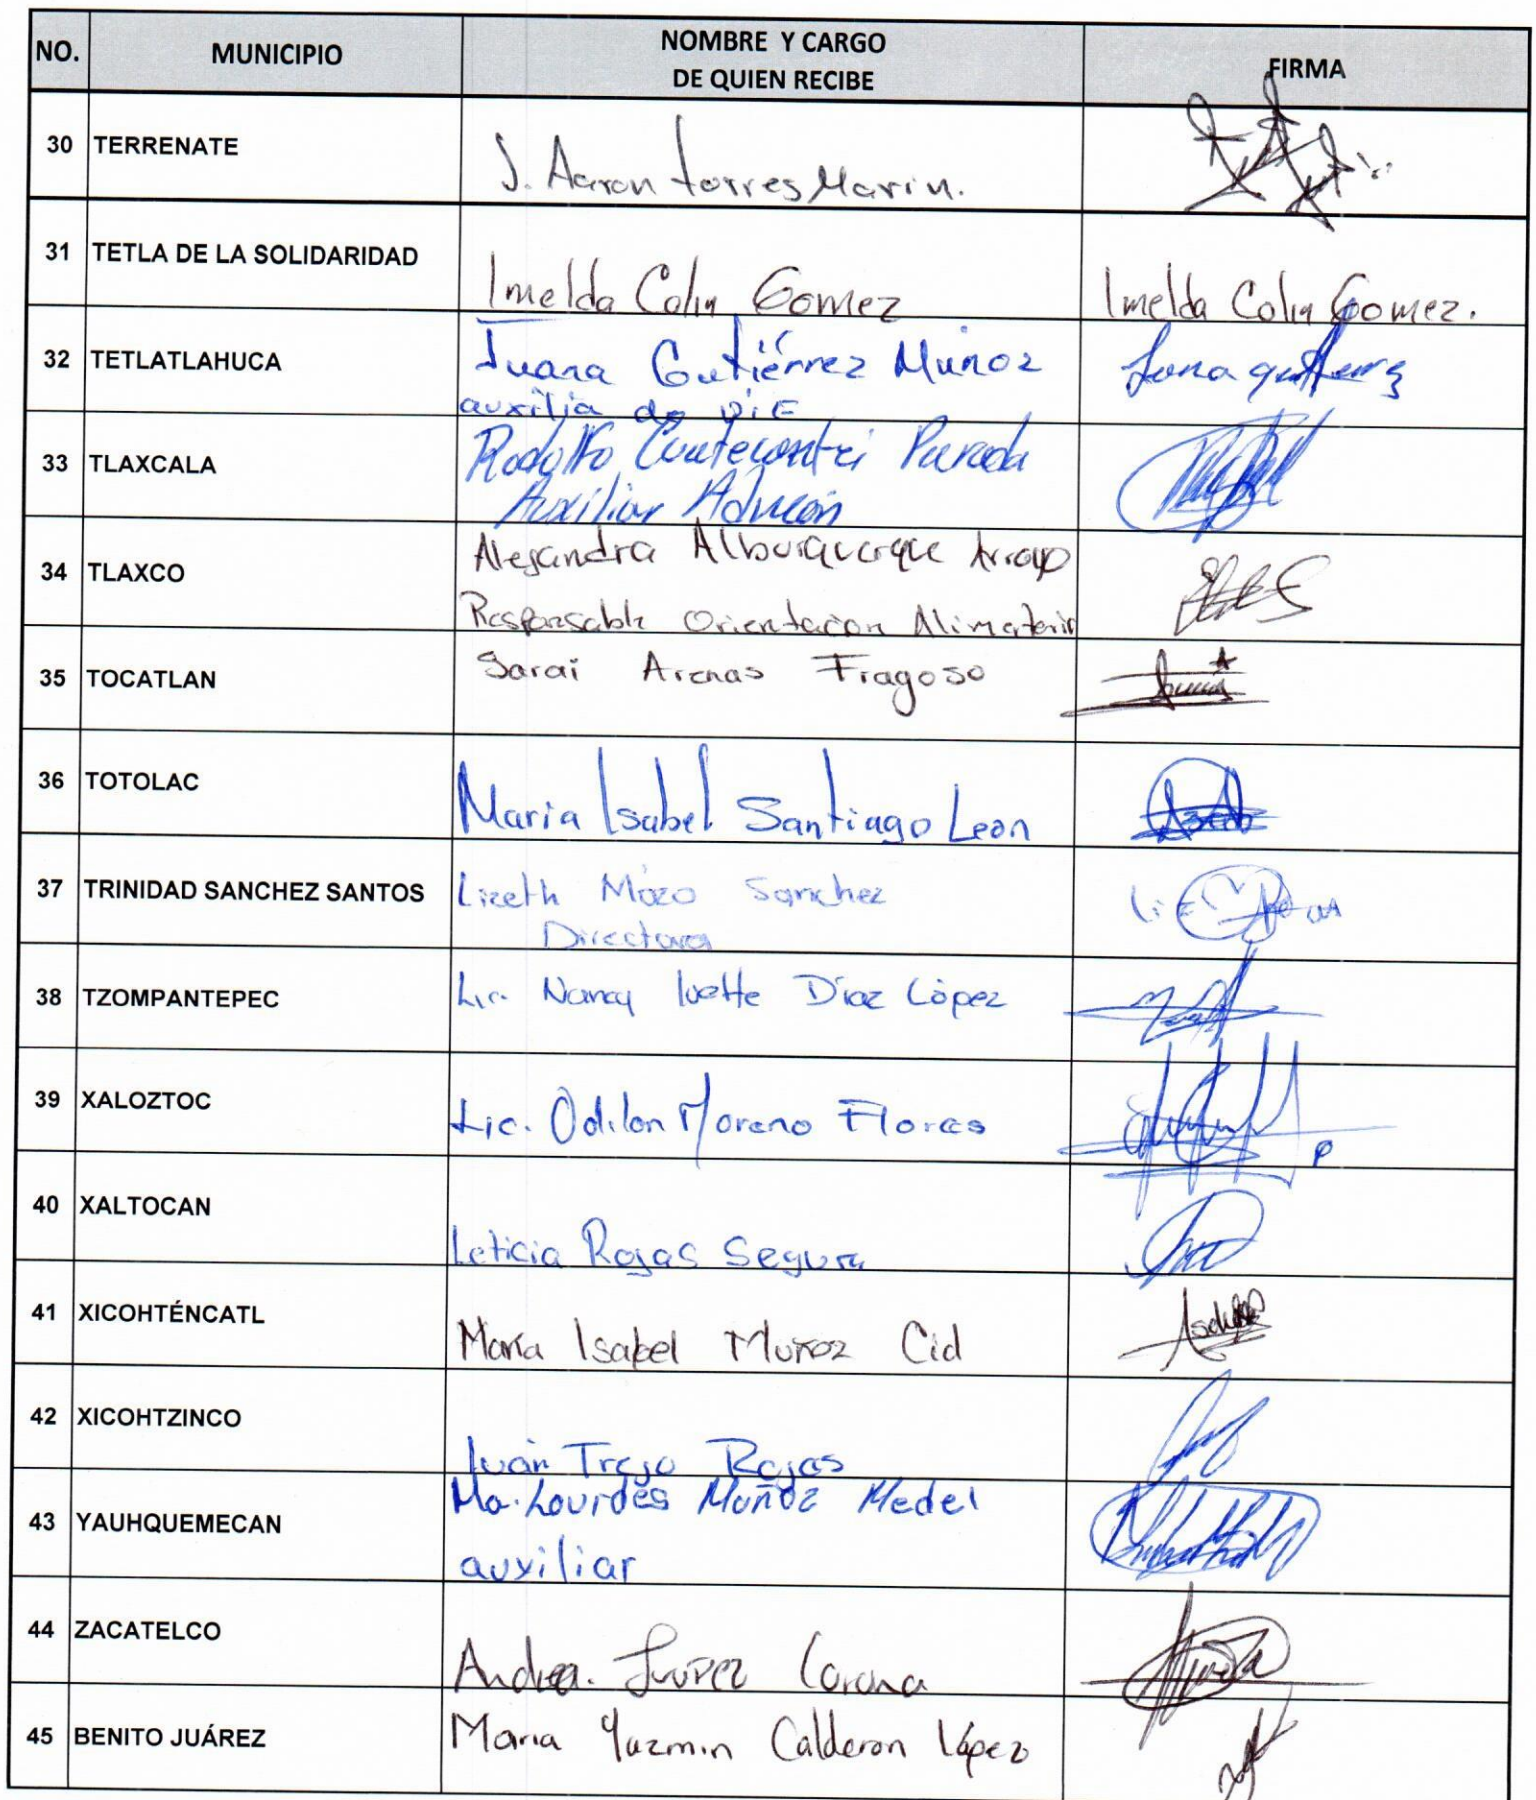 NO. MUNICIPIO NOMBRE Y CARGO DE QUIEN RECIBE FIRMA
30 TERRENATE J. Aaron Torres Marin.
31 TETLA DE LA SOLIDARIDAD Imelda Colin Gomez Imelda Colin Gomez.
32 TETLATLAHUCA Juana Gutiérrez Muñoz
auxilia de
33 TLAXCALA Rodolfo Cuatecontzi Parada
Auxiliar
34 TLAXCO Alejandra Alburquerque Arroyo
Responsable Orientación Alimentaria
35 TOCATLAN Sarai Arenas Fragoso
36 TOTOLAC Maria Isabel Santiago Leon
37 TRINIDAD SANCHEZ SANTOS Lizeth Mozo Sanchez
Directora
38 TZOMPANTEPEC Lic. Nancy Ivette Díaz López
39 XALOZTOC Lic. Odilon Moreno Flores
40 XALTOCAN Leticia Rojas Segura
41 XICOHTÉNCATL María Isabel Muñoz Cid
42 XICOHTZINCO Iván Trejo Rojas
43 YAUHQUEMECAN Ma. Lourdes Muñoz Medel
auxiliar
44 ZACATELCO Andrea. Juárez Corona
45 BENITO JUÁREZ Maria Yazmin Calderon López